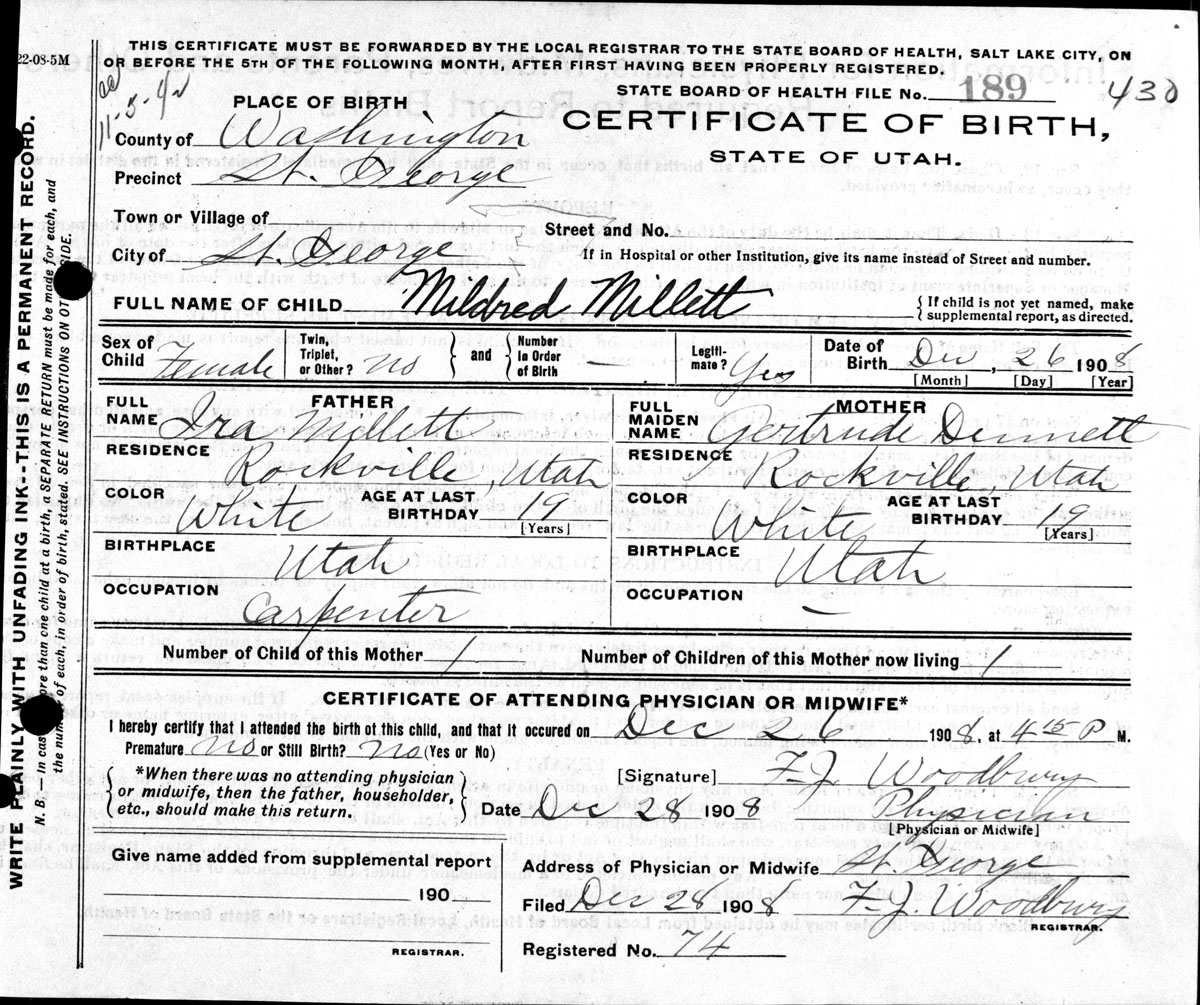 22-08-5M
THIS CERTIFICATE MUST BE FORWARDED BY THE LOCAL REGISTRAR TO THE STATE BOARD OF HEALTH, SALT LAKE CITY, ON
OR BEFORE THE 5TH OF THE FOLLOWING MONTH, AFTER FIRST HAVING BEEN PROPERLY REGISTERED.
STATE BOARD OF HEALTH FILE No. 189 430
11-5-42
PLACE OF BIRTH
CERTIFICATE OF BIRTH,
STATE OF UTAH.
County of Washington
Precinct St. George
Town or Village of
Street and No.
City of St. George
If in Hospital or other Institution, give its name instead of Street and number.
FULL NAME OF CHILD Mildred Millett
{ If child is not yet named, make
supplemental report, as directed.
Sex of Child Female
Twin, Triplet, or Other? no
and
Number in Order of Birth —
Legiti-mate? Yes
Date of Birth Dec, 26 1908
[Month] [Day] [Year]
FATHER
FULL NAME Ira Millett
RESIDENCE Rockville, Utah
COLOR White
AGE AT LAST BIRTHDAY 19
[Years]
BIRTHPLACE Utah
OCCUPATION Carpenter
MOTHER
FULL MAIDEN NAME Gertrude Dennett
RESIDENCE Rockville, Utah
COLOR White
AGE AT LAST BIRTHDAY 19
[Years]
BIRTHPLACE Utah
OCCUPATION —
Number of Child of this Mother 1
Number of Children of this Mother now living 1
CERTIFICATE OF ATTENDING PHYSICIAN OR MIDWIFE*
I hereby certify that I attended the birth of this child, and that it occured on Dec 26 1908, at 4 15 P M.
Premature no or Still Birth? no (Yes or No)
*When there was no attending physician
or midwife, then the father, householder,
etc., should make this return.
[Signature] F. J. Woodbury
Date Dec 28 1908
Physician
[Physician or Midwife]
Give name added from supplemental report
190
REGISTRAR.
Address of Physician or Midwife St. George
Filed Dec 28 1908 F. J. Woodbury
REGISTRAR.
Registered No. 74
WRITE PLAINLY WITH UNFADING INK--THIS IS A PERMANENT RECORD.
N. B. In case more than one child at a birth, a SEPARATE RETURN must be made for each, and
the number of each, in order of birth, stated. SEE INSTRUCTIONS ON OTHER SIDE.